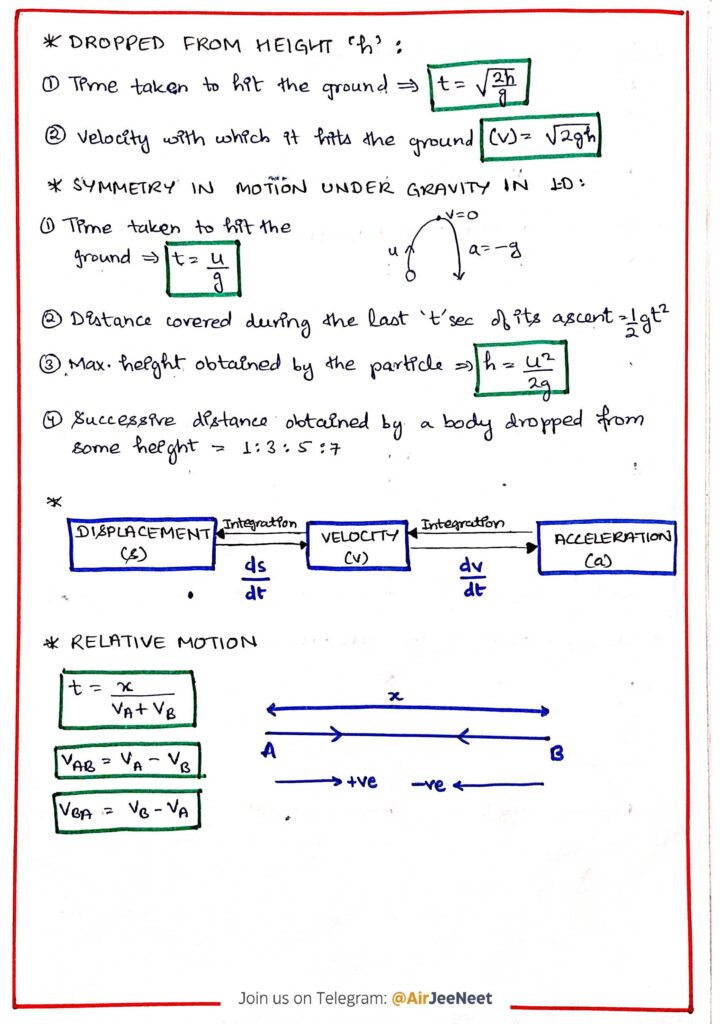 * DROPPED FROM HEIGHT 'h' :
① Time taken to hit the ground ⇒ t = √(2h/g)
② Velocity with which it hits the ground (v) = √2gh
* SYMMETRY IN MOTION UNDER GRAVITY IN 1-D:
① Time taken to hit the
ground ⇒ t = u/g
v=0
u
a = -g
② Distance covered during the last 't' sec of its ascent = 1/2 gt²
③ Max. height obtained by the particle ⇒ h = u²/2g
④ Successive distance obtained by a body dropped from
some height = 1:3:5:7
*
DISPLACEMENT (s)
Integration
ds/dt
VELOCITY (v)
Integration
dv/dt
ACCELERATION (a)
* RELATIVE MOTION
t = x/(VA + VB)
VAB = VA - VB
VBA = VB - VA
x
A
B
+ve
-ve
Join us on Telegram: @AirJeeNeet